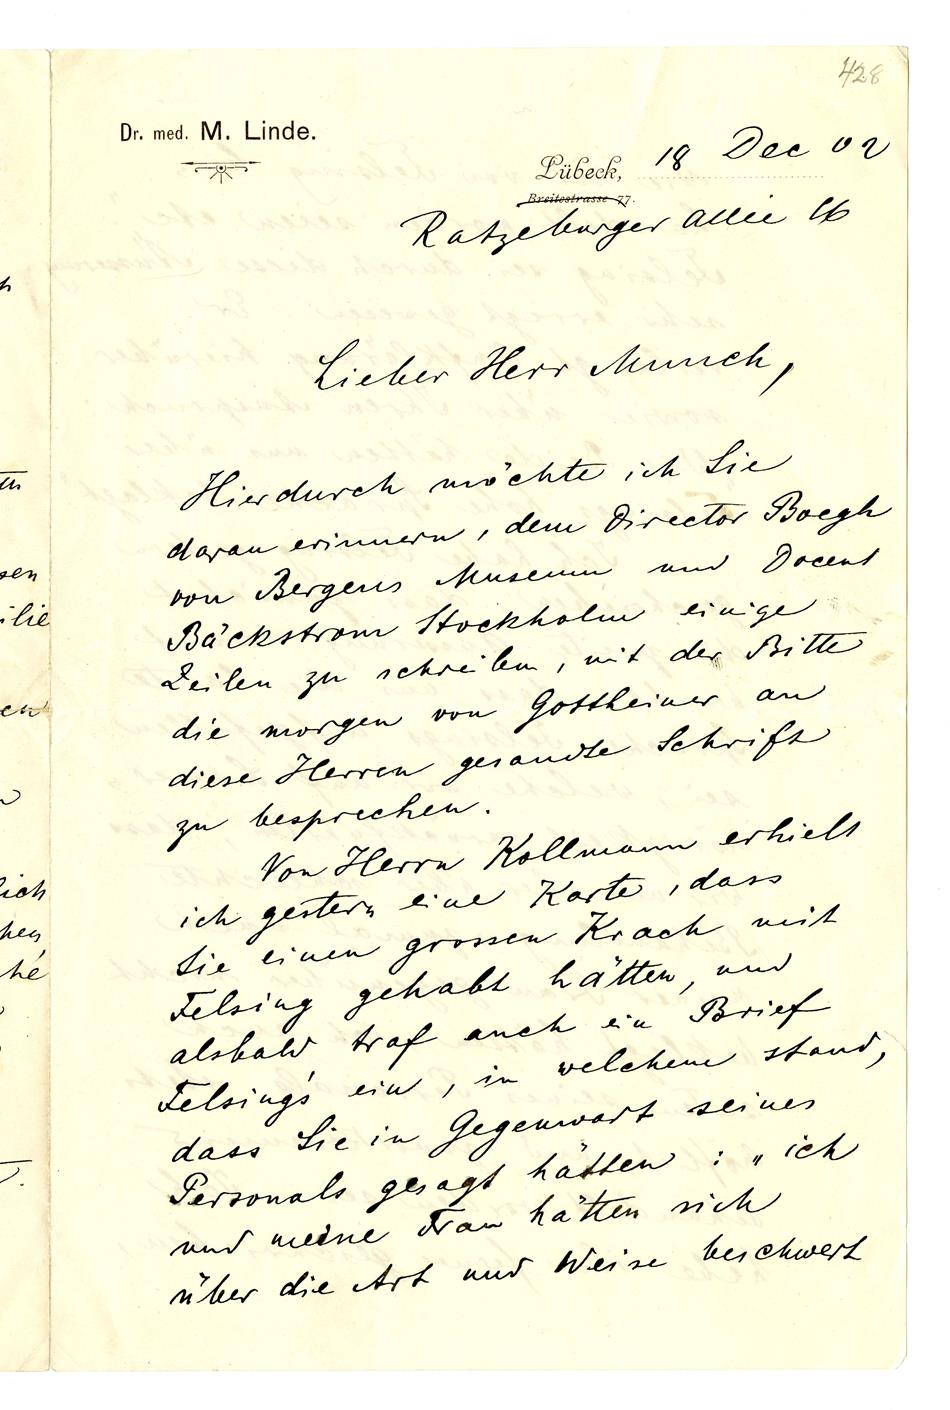 428
Dr. med. M. Linde.
Lübeck, 18 Dec 02
Breitestrasse 77.
Ratzeburger Allee 16
Lieber Herr Munch,
Hierdurch möchte ich Sie
daran erinnern, dem Director Boegh
von Bergens Museum und Docent
Bäckstrom Stockholm einige
Zeilen zu schreiben, mit der Bitte
die morgen von Gottheiner an
diese Herren gesandte Schrift
zu besprechen.
Von Herrn Kollmann erhielt
ich gestern eine Karte, dass
Sie einen grossen Krach mit
Felsing gehabt hätten, und
alsbald traf auch ein Brief
Felsing's ein, in welchem stand,
dass Sie in Gegenwart seines
Personals gesagt hätten: „ich
und meine Frau hätten sich
über die Art und Weise beschwert